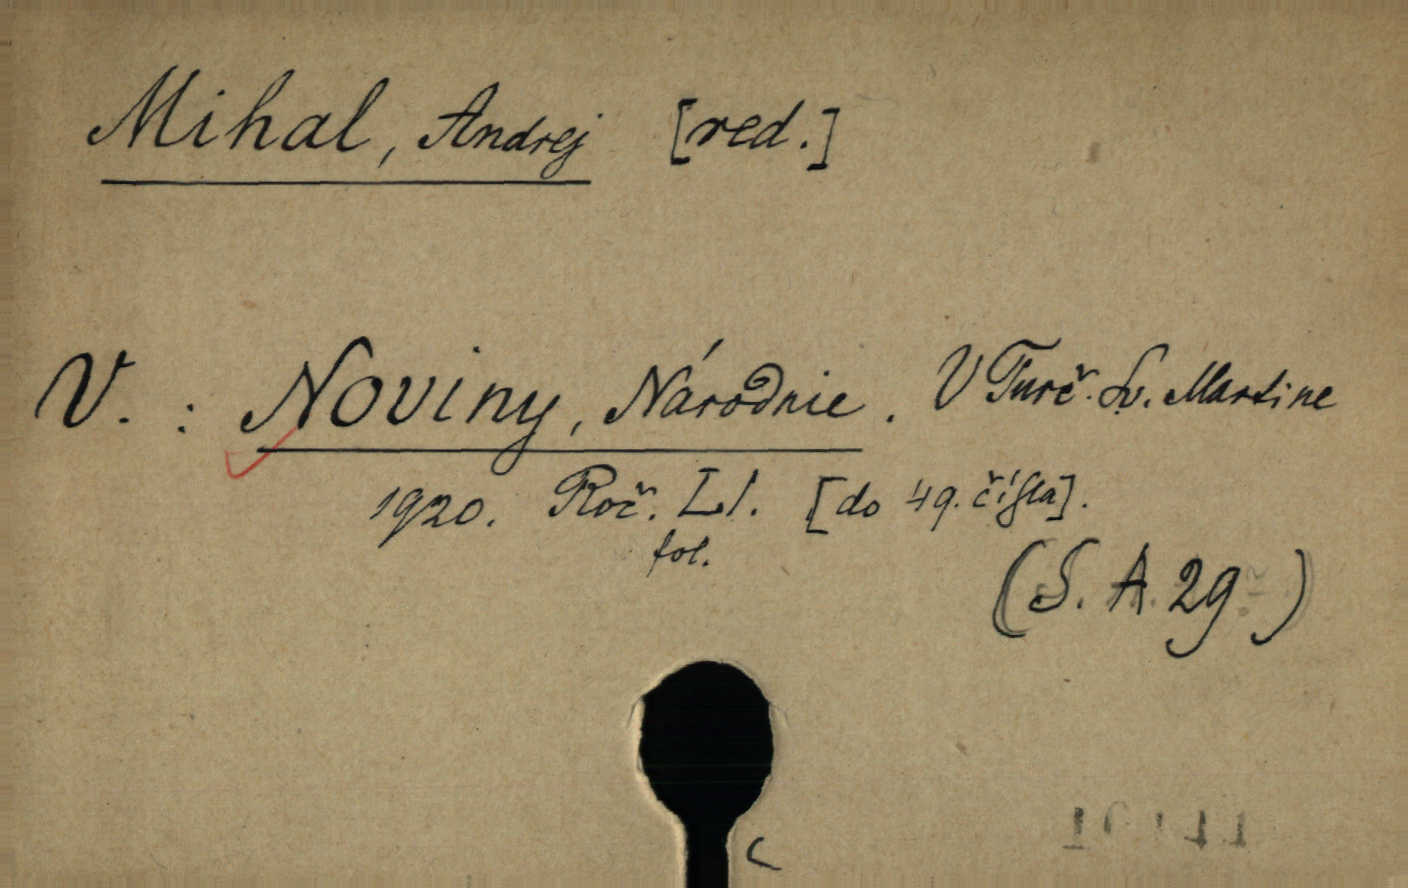 Mihal, Andrej [red.]
V. : Noviny, Národnie. V Turč. Sv. Martine
1920. Roč. LI. [do 49. čísla].
fol.
(S. A. 29)